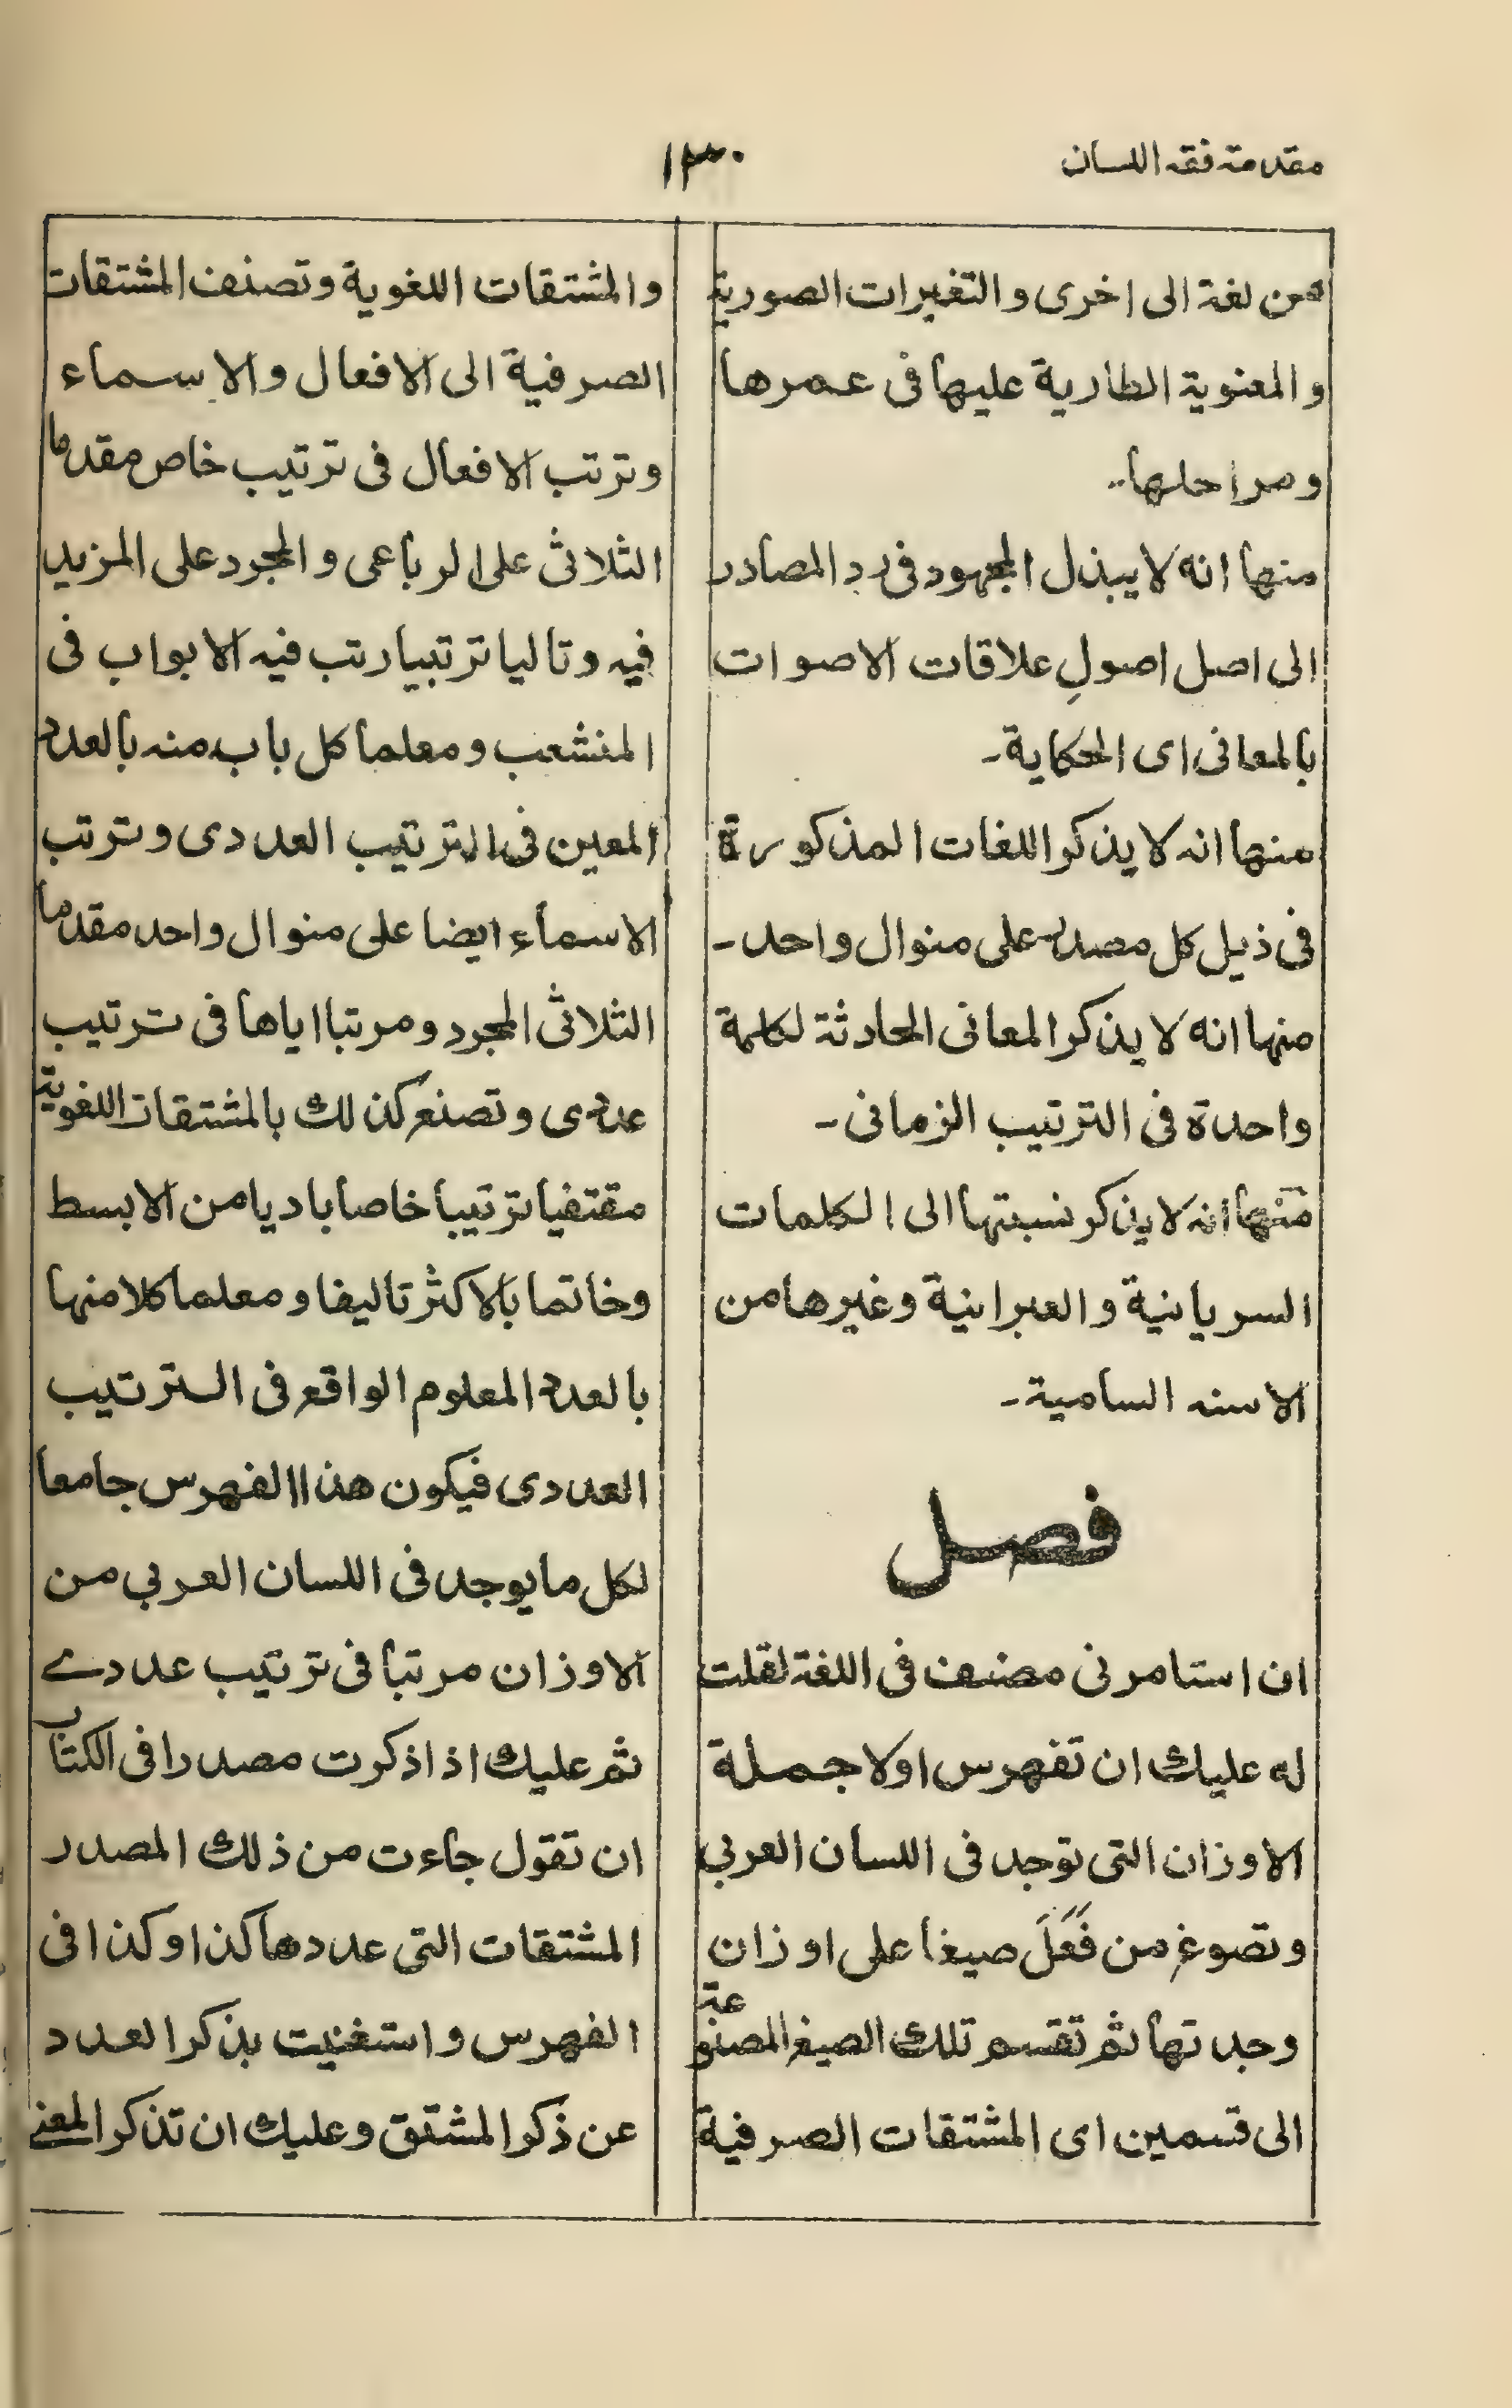 مقدمة فقه اللسان
١٣٠
من لغة الى اخرى والتغيرات الصورية
والمعنوية الطارية عليها فى عمرها
ومراحلها..
منها انه لا يبذل المجهود فى رد المصادر
الى اصل اصولِ علاقات الاصوات
بالمعانى اى الحكاية -
منها انه لا يذكر اللغات المذكورة
فى ذيل كل مصدر على منوال واحد -
منها انه لا يذكر المعانى الحادثة لكلمة
واحدة فى الترتيب الزمانى -
منها انه لا يذكر نسبتها الى الكلمات
السريانية والعبرانية وغيرها من
الاسنه السامية -
فصل
ان استامرنى مصنف فى اللغة لقلت
له عليك ان تفهرس اولا جملة
الاوزان التى توجد فى اللسان العربى
وتصوغ من فَعَلَ صيغا على اوزان
وجدتها ثم تقسم تلك الصيغ المصنوعة
الى قسمين اى المشتقات الصرفية
والمشتقات اللغوية وتصنف المشتقات
الصرفية الى الافعال والاسماء
وترتب الافعال فى ترتيب خاص مقدما
الثلاثى على الرباعى والمجرد على المزيد
فيه وتاليا ترتيبا رتب فيه الابواب فى
المنشعب ومعلما كل باب منه بالعدد
المعين فى الترتيب العددى وترتب
الاسماء ايضا على منوال واحد مقدما
الثلاثى المجرد ومرتبا اياها فى ترتيب
عددى وتصنع كذلك بالمشتقات اللغوية
مقتفيا ترتيبا خاصا باديا من الابسط
وخاتما بالاكثر تاليفا ومعلما كلا منها
بالعدد المعلوم الواقع فى الترتيب
العددى فيكون هذا الفهرس جامعا
لكل ما يوجد فى اللسان العربى من
الاوزان مرتبا فى ترتيب عددے
ثم عليك اذا ذكرت مصدرا فى الكتاب
ان تقول جاءت من ذلك المصدر
المشتقات التى عددها كذا وكذا فى
الفهرس واستغنيت بذكر العدد
عن ذكر المشتق وعليك ان تذكر المعنے